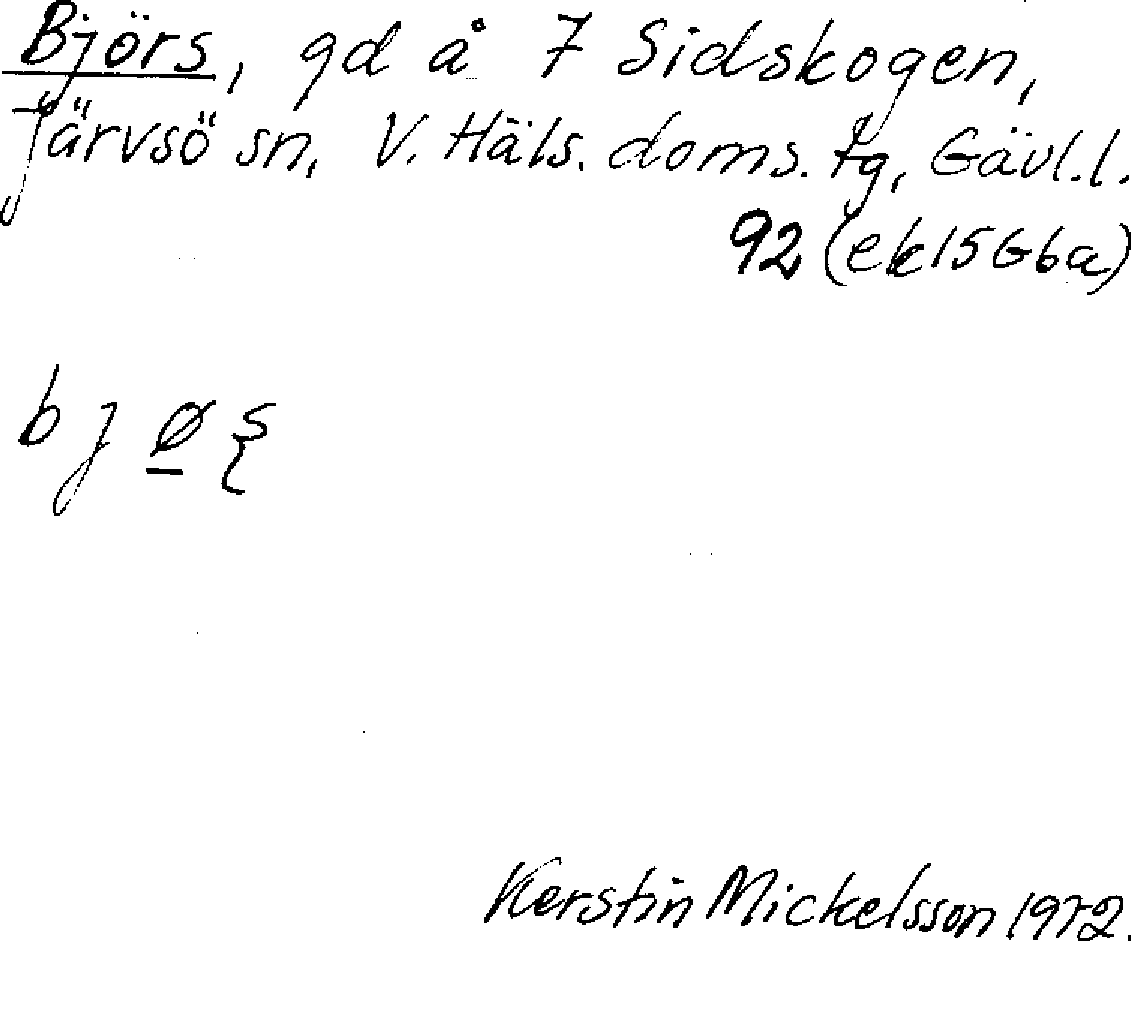 Björs, gd å 7 Sidskogen,
Järvsö sn, V. Häls. doms. tg, Gävl.l.
92 (ek15G6a)
b j ø̲ ʂ
Kerstin Mickelsson 1972.